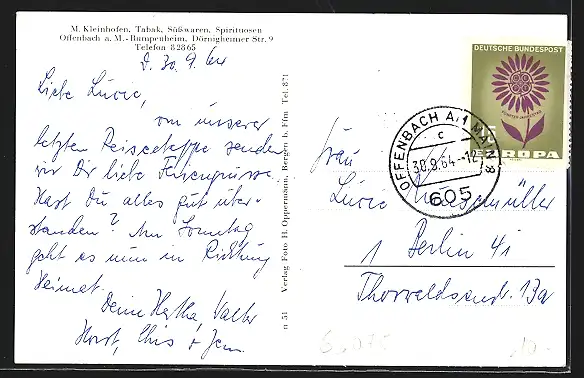 M. Kleinhofen, Tabak, Süßwaren, Spirituosen
Offenbach a. M.-Rumpenheim, Dörnigheimer Str. 9
Telefon 82865
d. 30.9.64
Liebe Lucie,
von unserer
letzten Reiseetappe senden
wir Dir liebe Feriengrüsse.
Hast Du alles gut über-
standen? Am Sonntag
geht es nun in Richtung
Heimat.
Deine Hertha, Walter
Horst, Chris +
n 51 Verlag Foto H. Oppermann, Bergen b. Ffm Tel. 871
DEUTSCHE BUNDESPOST
EUROPA
OFFENBACH A. MAIN 8
c
30.9.64.-12
605
Frau
Lucie
1 Berlin 41
Thorwaldsenstr. 13a